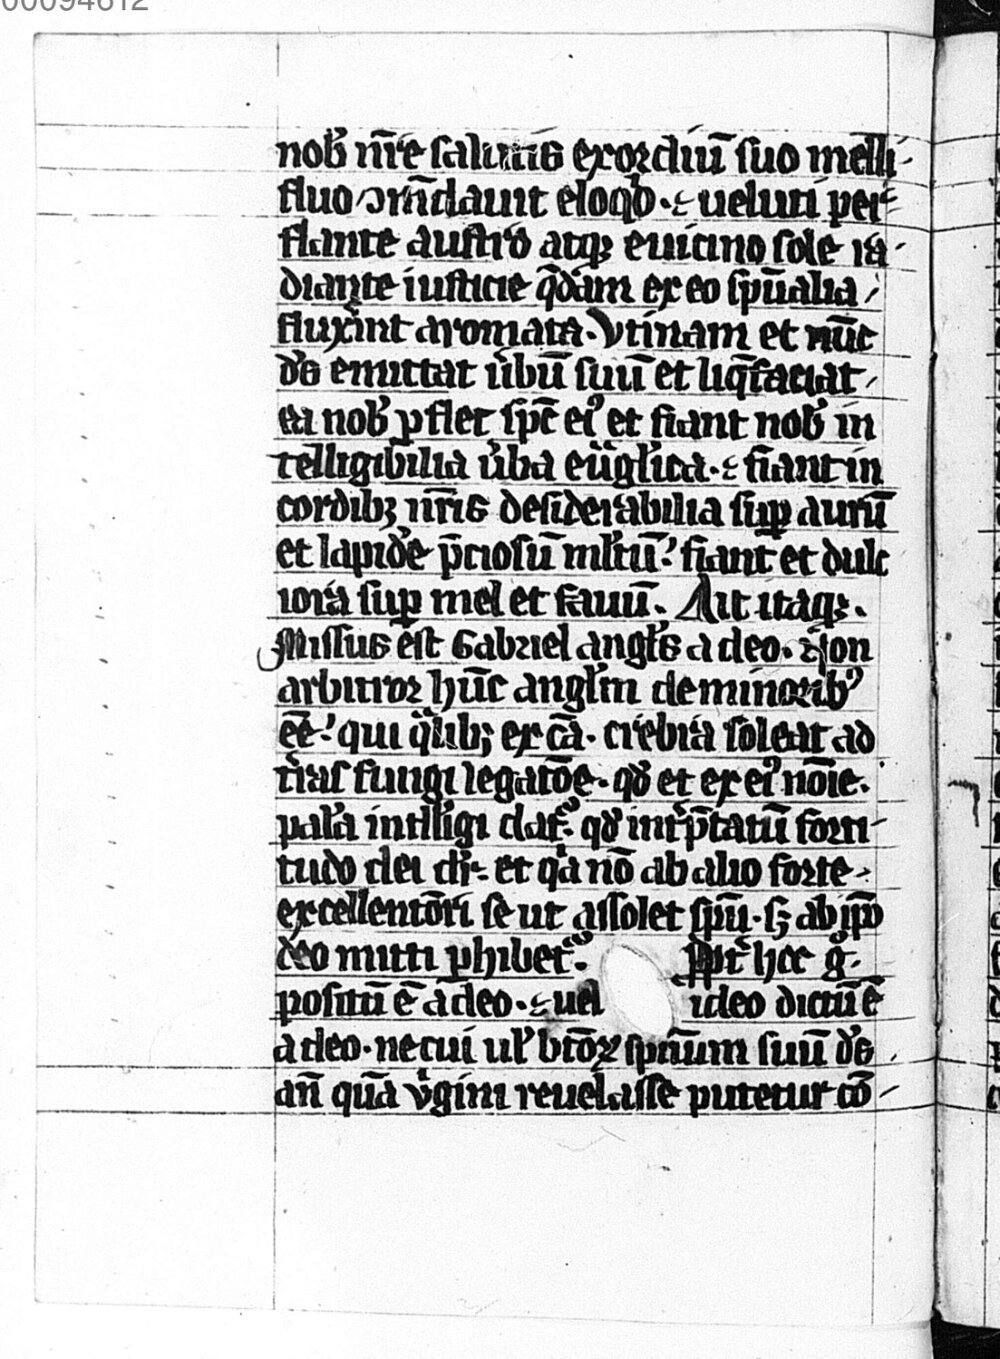 00094612
nob̾ nr̄e salutis exordiū suo melli-
fluo ↄm̄dauit eloq̊o · ⁊ ueluti per
flante austro atq; e uicino sole ra-
diante iusticie q̄dam ex eo sp̄ualia
fluxer̄int aromata · Vtinam et nūc
ds̄ emittat u̾bū suū et liq̄faciat
ea nob̾ ꝑflet sp̄c ei᷒ et fiant nob̾ in
telligibilia u̾ba eu̾ḡlica · ⁊ fiant in
cordib; nr̄is desiderabilia suꝑ aurū
et lapide p̄ciosū ml̄tū ? fiant et dulc
iora suꝑ mel et fauū . Ait itaq; .
Missus est Gabriel angl̄s a deo . Non
arbitror hūc angl̄m de minorib᷒
eē ! qui q̄lib; ex cā · crebra soleat ad
t̾ras fungi legatōe · qd̾ et ex ei᷒ nōie .
pala intelligi dat᷑ . qd̾ int̾p̄tatū forti-
tudo dei dr̄ · et q̇a nō ab alio forte
excellentōri se ut assolet sp̄u · s; ab ip̄o
deo mitti ꝑhibet᷑ . Ꝓpt̾ hoc g̊
positū ē a deo · ⁊ uel ideo dictū ē
a deo · ne cui ul̾ btōꝝ spirituum suū ds̄
an̄ quā v̾gini reuelasse putetur cō